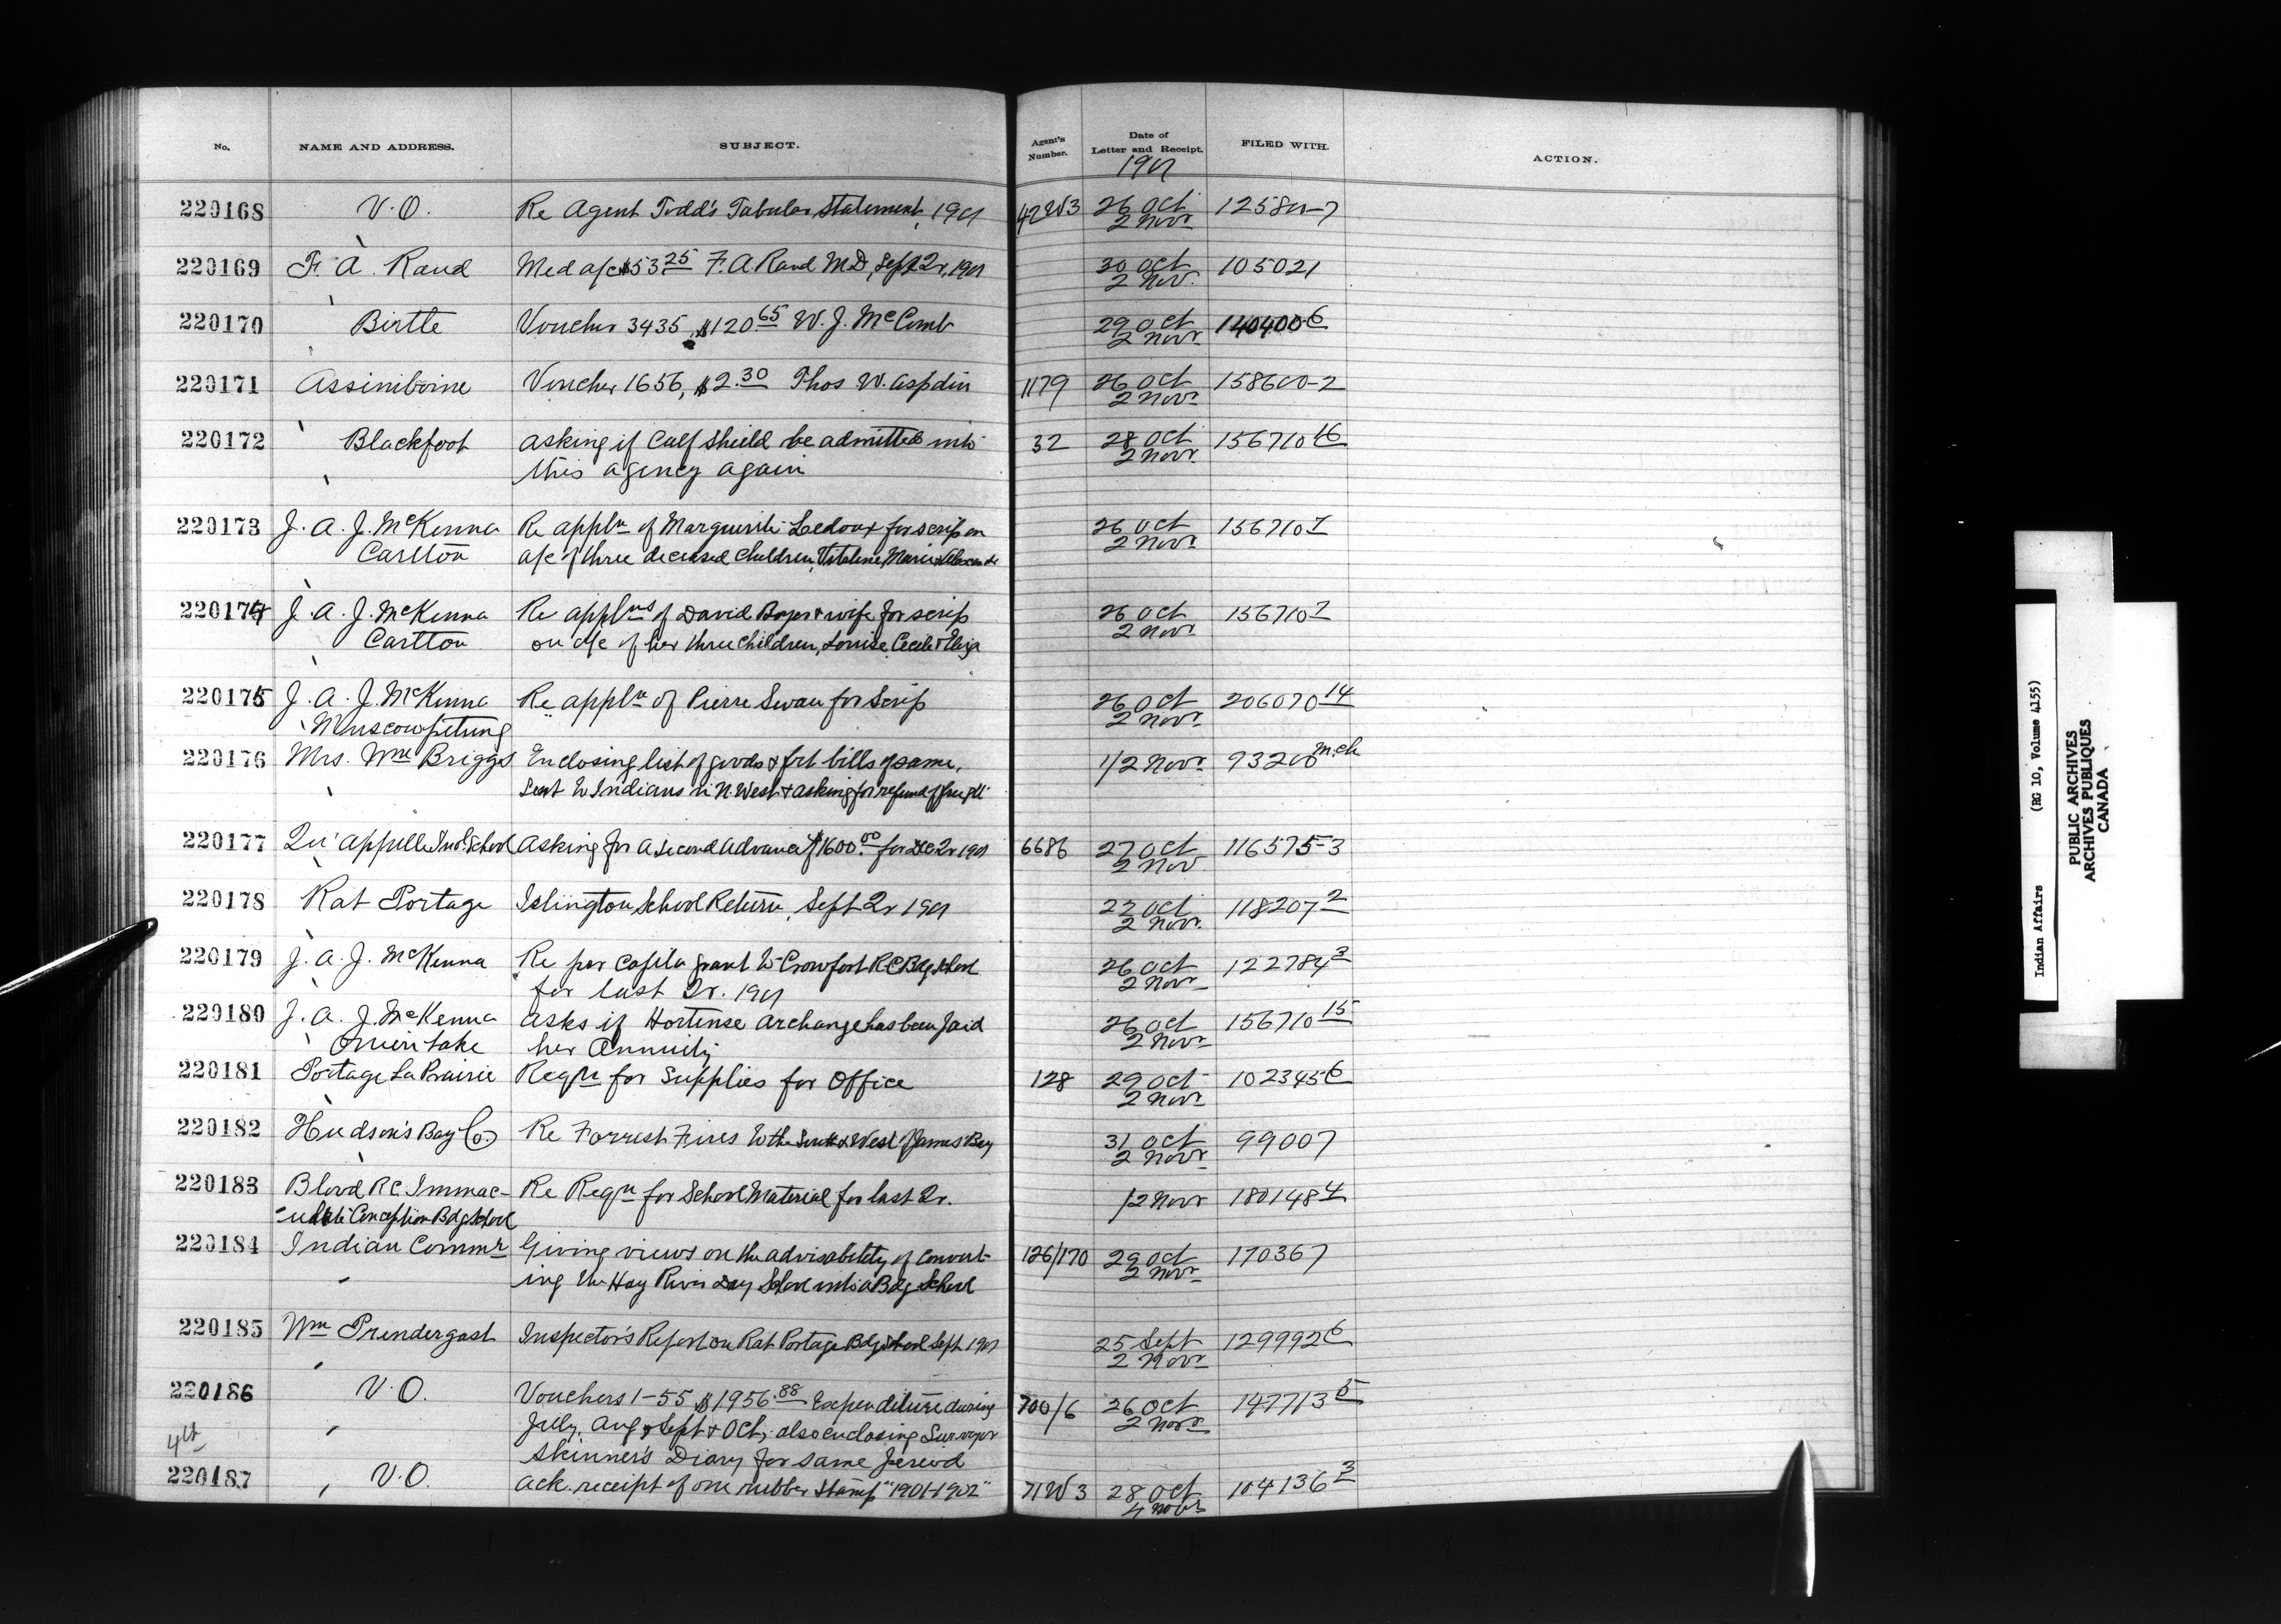 No. NAME AND ADDRESS. SUBJECT. Agent's Number. Date of Letter and Receipt. FILED WITH. ACTION.
1901
220168 V.O. Re Agent Todd's Tabular Statement, 1901 42W3 26 Oct
2 Novr
220169 F. A. Rand Med a/c $53.25 F. A. Rand M.D, Sept Qr, 1901 30 Oct 105021
2 Nov.
220170 Birtle Voucher 3435, $120.65 W. J. McComb 29 Oct 140400-6
2 Novr
220171 Assiniboine Voucher 1656, $2.30 Thos W. Aspdin 1179 26 Oct 158600-2
2 Novr
220172 Blackfoot asking if Calf Sheild be admitted into 32 28 Oct 156710 16
this agency again 2 Novr
220173 J. A. J. McKenna Re appln of Marguerite Ledoux for scrip on 26 Oct 156710 7
Carlton a/c of three deceased children, Vitaline, Marie & Alexandre 2 Novr
220174 J. A. J. McKenna Re applns of David Boyer & wife for scrip 26 Oct 156710 7
Carlton on a/c of her three children, Louise, Cecile & Eliza 2 Novr
220175 J. A. J. McKenna Re appln of Pierre Swan for Scrip 26 Oct 206070 14
Muscowpetung 2 Novr
220176 Mrs. Wm Briggs Enclosing list of goods & frt bills of same, 1/2 Novr 93200 m.ch
Sent to Indians in N. West & asking for refund of freight
220177 Qu'appelle Ind. School Asking for a second advance of $1600.00 for Dec Qr 1901 6686 27 Oct 116575-3
2 Nov.
220178 Rat Portage Islington School Return, Sept Qr 1901 22 Oct 118207 2
2 Nov.
220179 J. A. J. McKenna Re per capita grant to Crowfoot R C Bdg School 26 Oct 122784 3
for last Qr. 1901 2 Novr
220180 J. A. J. McKenna asks if Hortense Archange has been paid 26 Oct 156710 15
Onion Lake her Annuity 2 Novr
220181 Portage La Prairie Reqn for Supplies for Office 128 29 Oct 102345 6
2 Novr
220182 Hudson's Bay Co. Re Forrest Fires to the South & West of James Bay 31 Oct 99007
2 Novr
220183 Blood R C Immac- Re Reqn for School Material for last Qr. 1/2 Novr 180148 4
-ulate Conception Bdg School
220184 Indian Commr Giving views on the advisability of convert- 126/170 29 Oct 170367
ing the Hay River Day School into a Bdg School 2 Novr
220185 Wm Prendergast Inspector's Report on Rat Portage Bdg School Sept 1901 25 Sept 129992 6
2 Novr
220186 V.O. Vouchers 1-55 $1956.88 Expenditure during 700/6 26 Oct 147713 5
July, Aug & Sept & Oct, also enclosing Surveyor 2 Novr
4th Skinner's Diary for same period
220187 V.O. Ack. receipt of one rubber stamp "1901-1902" 71W3 28 Oct 104136 3
4 Novr
Indian Affairs (RG 10, Volume 4155)
PUBLIC ARCHIVES
ARCHIVES PUBLIQUES
CANADA